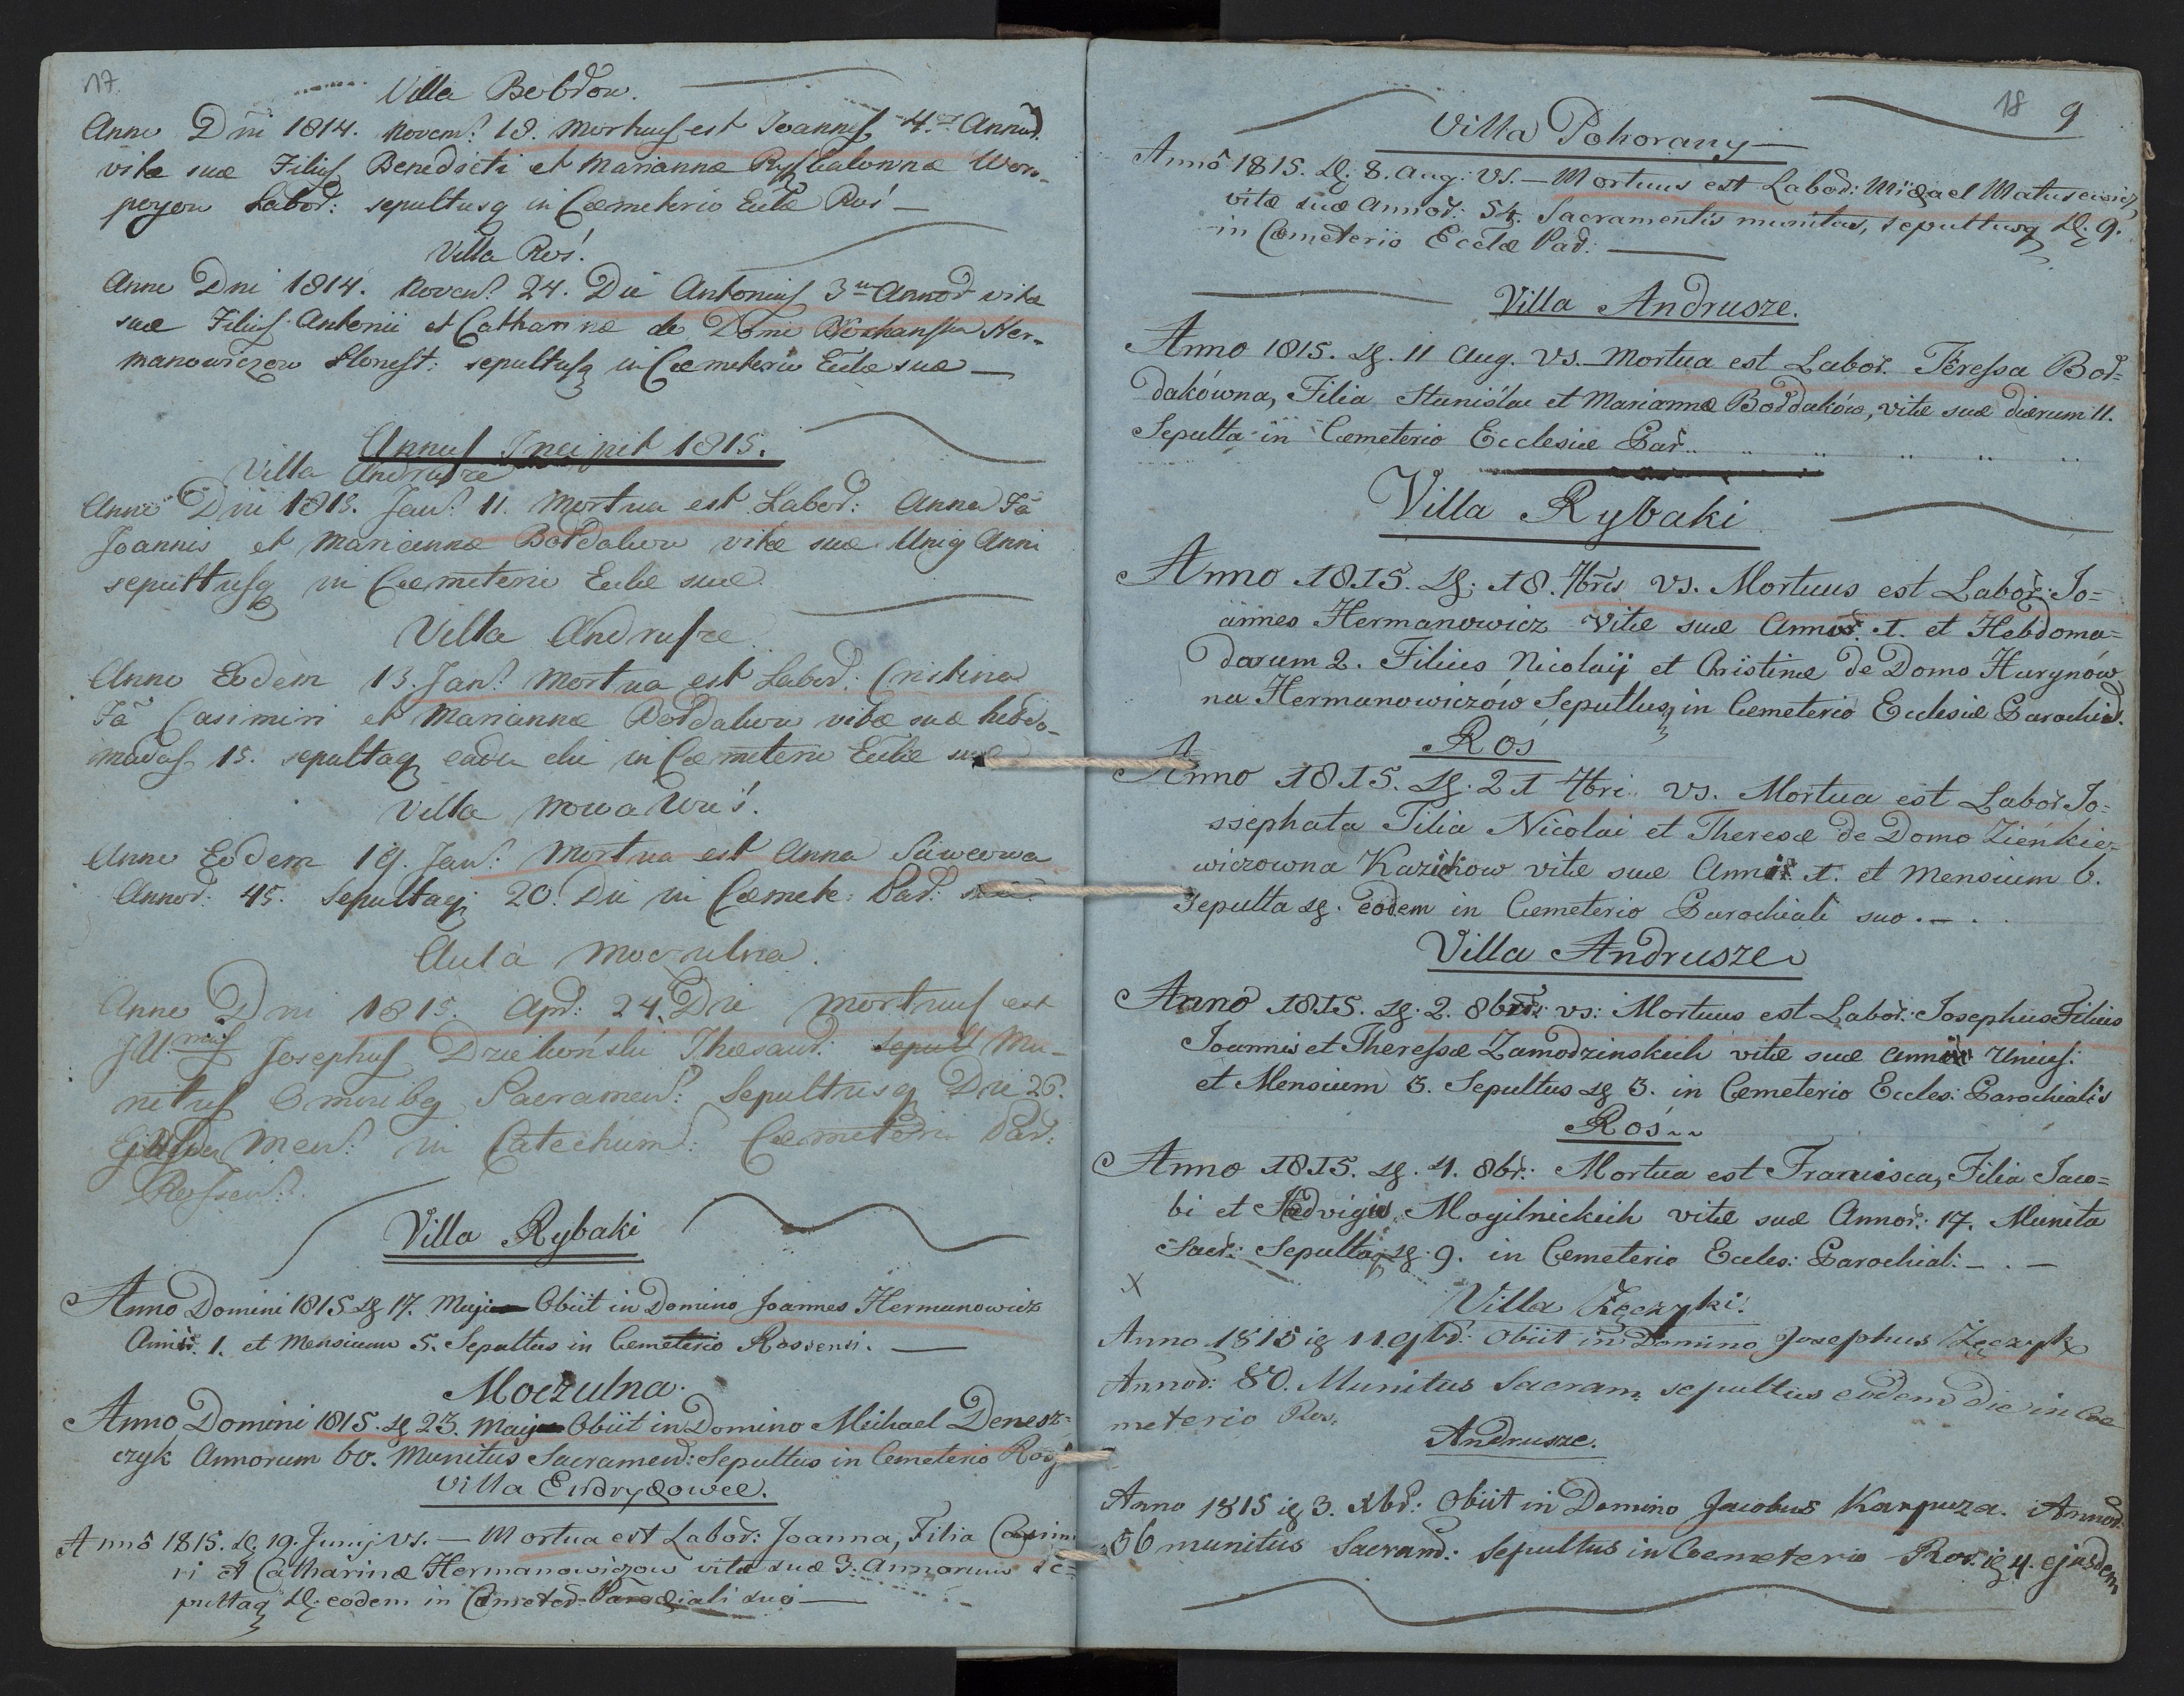 17.
Villa Bobdow.
Anno Dni 1814. Novem: 18. Mortuus est Joannes 4. Annor:
vitæ suæ Filius Benedicti et Mariannæ
Labor: sepultusq in Cæmeterio Eccle Ros
Villa Ros.
Anno Dni 1814. Novem: 24. Die Antonius 3 Annor vitæ
suæ Filius Antonii et Catharinæ de Domo Her-
manowiczow Honest: sepultusq in Cæmeterio Eccle suæ
Annus Incipit 1815.
Villa Andrusze
Anno Dni 1815. Jan: 11. Mortua est Labor: Anna Fa
Joannis et Mariannæ vitæ suæ Uniq Anni
sepultusq in Cæmeterio Eccle suæ.
Villa Andrusze
Anno Eodem 13. Jan: Mortua est Labor: Cristina
Fa Casimiri et Mariannæ vitæ suæ hebdo-
madas 15. sepultaq eadem die in Cæmeterio Eccle suæ
Villa Nowa Wies.
Anno Eodem 19. Jan: Mortua est Anna
Annor: 45. Sepultaq 20. Die in Cæmete: Par:
Aula Moczulna.
Anno Dni 1815. Apr: 24. Die Mortuus est
Ill: mus Josephus Thesaur: Sepul Mu-
nitus Omnibq Sacramen: Sepultusq Die 26.
Ejusdem Men: in Catechum: Cæmeterii Par:
Rossen:
Villa Rybaki
Anno Domini 1815 D 17. Maji Obiit in Domino Joannes Hermanowicz
Annor. 1. et Mensium 5. Sepultus in Cemeterio Rossensi.
Moczulna.
Anno Domini 1815. D 23. Maji Obiit in Domino Michael Denesz=
czyk Annorum 60. Munitus Sacramen: Sepultus in Cemeterio Ross
Villa
Anno 1815. D. 19. Junij VS. — Mortua est Labor: Joanna, Filia Casimi
ri et Catharinæ Hermanowiczow vitæ suæ 3. Annorum Se=
pultaq D. eodem in Cæmeter Parochiali suo
18 9
Villa Pohorany
Anno 1815. D. 8. Aug: VS. — Mortuus est Labor: Michael Matusewicz,
vitæ suæ Annor: 54. Sacramentis munitus, sepultusq D. 9.
in Cæmeterio Eccelæ Par:
Villa Andrusze.
Anno 1815. D. 11 Aug. VS. Mortua est Labor. Teressa Boł=
dakówna, Filia Stanislai et Mariannæ Bołdaków, vitæ suæ dierum 11.
Sepulta in Cæmeterio Ecclesiæ Par.
Villa Rybaki
Anno 1815. D. 18. 7bris VS. Mortuus est Labor: Jo=
annes Hermanowicz Vitæ suæ Annor. 1. et Hebdoma=
darum 2. Filius Nicolaij et Christinæ de Domo Hurynów
na Hermanowiczów Sepultusq in Cemeterio Ecclesiæ Parochial.
Ros
Anno 1815. D. 21 7bri VS. Mortua est Labor Jo=
ssephata Filia Nicolai et Theresæ de Domo Zienkie=
wiczowna Kazikow vitæ suæ Annor 1. et Mensium 6.
Sepulta D. eodem in Cæmeterio Parochiali suo.
Villa Andrusze
Anno 1815. D. 2. 8bri: VS: Mortuus est Labor: Josephus Filius
Joannis et Theressæ Zamodzinskich vitæ suæ Annor Unius:
et Mensium 3. Sepultus D 3. in Cæmeterio Eccles: Parochialis
Ros
Anno 1815. D. 4. 8br: Mortua est Francisca, Filia Jaco=
bi et Hedvigis Mogilnickich vitæ suæ Annor: 17. Munita
Sacr: Sepultaq D. 9. in Cemeterio Eccles: Parochial:
X
Villa Zęczyki.
Anno 1815 D 11. 9br: Obiit in Domino Josephus Zęczyk
Annor: 80. Munitus Sacram: sepultus eodem die in Coe
meterio Ros.
Andrusze.
Anno 1815 D 3. Xbr: Obiit in Domino Jacobus Karpuza. Annor.
56 munitus Sacram: Sepultus in Coemeterio Ros. D 4. ejusdem